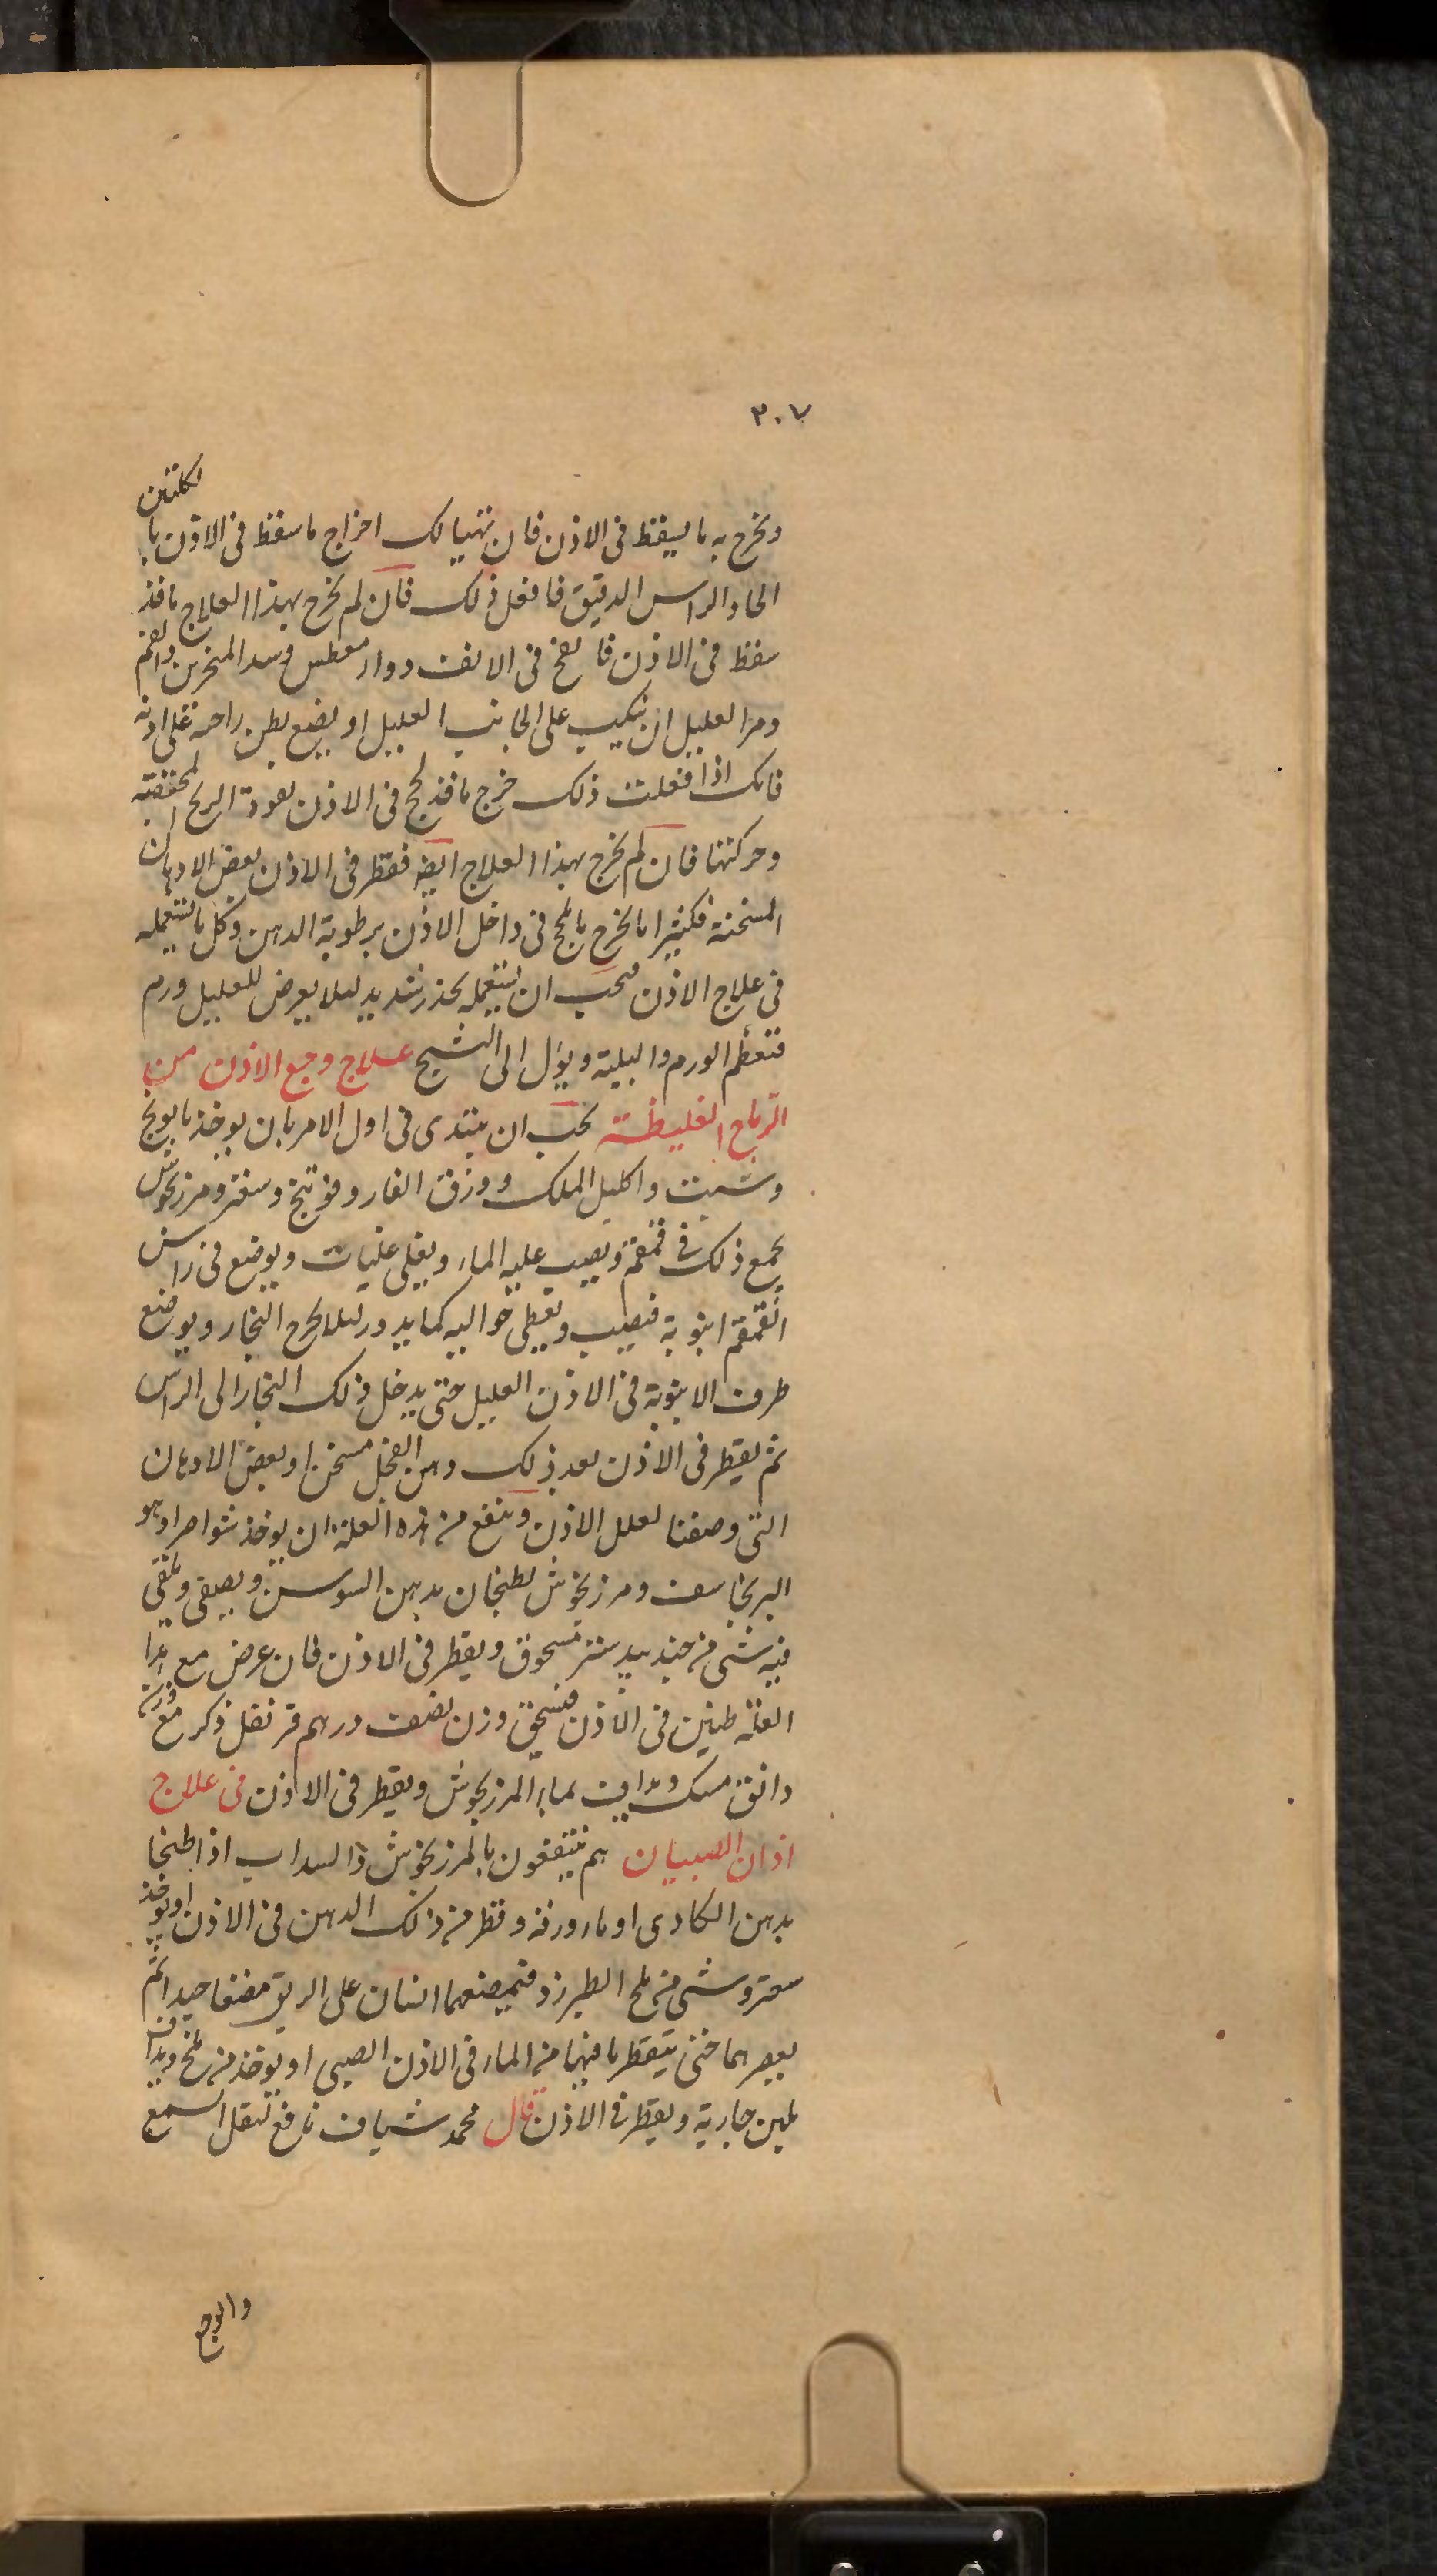 ٣٠٧
ويخرج به ما يسقط فى الاذن فان تهيا لك اخراج ما سقط فى الاذن با لكلبتان
الحاد الراس الدقيق فافعل ذلك فان لم يخرج بهذا العلاج ما قد
سقط فى الاذن فا نفخ فى الانف دواء معطس وسد المنخرين والفم
ومر العليل ان ينكب على الجانب العليل او يضع بطن راحته على اذنه
فانك اذا فعلت ذلك خرج ما قد لحج فى الاذن بعودة الريح المحتقنة
وحركتها فان لم يخرج بهذا العلاج ايضه فقطر فى الاذن بعض الادهان
المسخنة فكثيرا ما يخرج ما لحج فى داخل الاذن برطوبة الدهن وكل ما يستعمله
فى علاج الاذن فيجب ان يستعمله بحذر شديد ليلا يعرض للعليل ورم
فتعظم الورم والبلية ويؤل الى التشنج علاج وجع الاذن من
الرياح الغليظة يجب ان يبتدى فى اول الامر بان يوخذ بابونج
وشبت واكليل الملك وورق الغار وفوتنج وسعتر ومرزنجوش
يجمع ذلك فى قمقمة ويصب عليه الماء ويغلى غليات ويوضع فى راس
القمقم انبوبة فيصب ويغطى حواليه كما يدور ليلا يخرج البخار ويوضع
طرف الانبوبة فى الاذن العليل حتى يدخل ذلك البخار الى الراس
ثم يقطر فى الاذن بعد ذلك دهن الفجل مسخن او بعض الادهان
التى وصفنا لعلل الاذن وينفع من هذه العلة ان يوخذ شواصرا وهو
البرنجاسف ومرزنجوش يطبخان بدهن السوسن ويصفى ويلقى
فيه شى من جندبيدستر مسحوق ويقطر فى الاذن فان عرض مع هذا
العلة طنين فى الاذن فيسحق وزن نصف درهم قرنفل ذكر مع وزن
دانق مسك ويداف بماء المرزنجوش ويقطر فى الاذن فى علاج
اذان الصبيان هم ينتفعون بالمرزنجوش والسداب اذا طبخا
بدهن الكادى او ماء ورقه وقطر من ذلك الدهن فى الاذن او يوخذ
سعتر وشى من ملح الطبرزد فيمضغهما انسان على الريق مضغا جيدا ثم
يعصرهما حتى يتقطر ما فيها من الماء فى الاذن الصبى او يوخذ من ملح ويداف
بلبن جارية ويقطر فى الاذن قال محمد شياف نافع لثقل السمع
والوجع